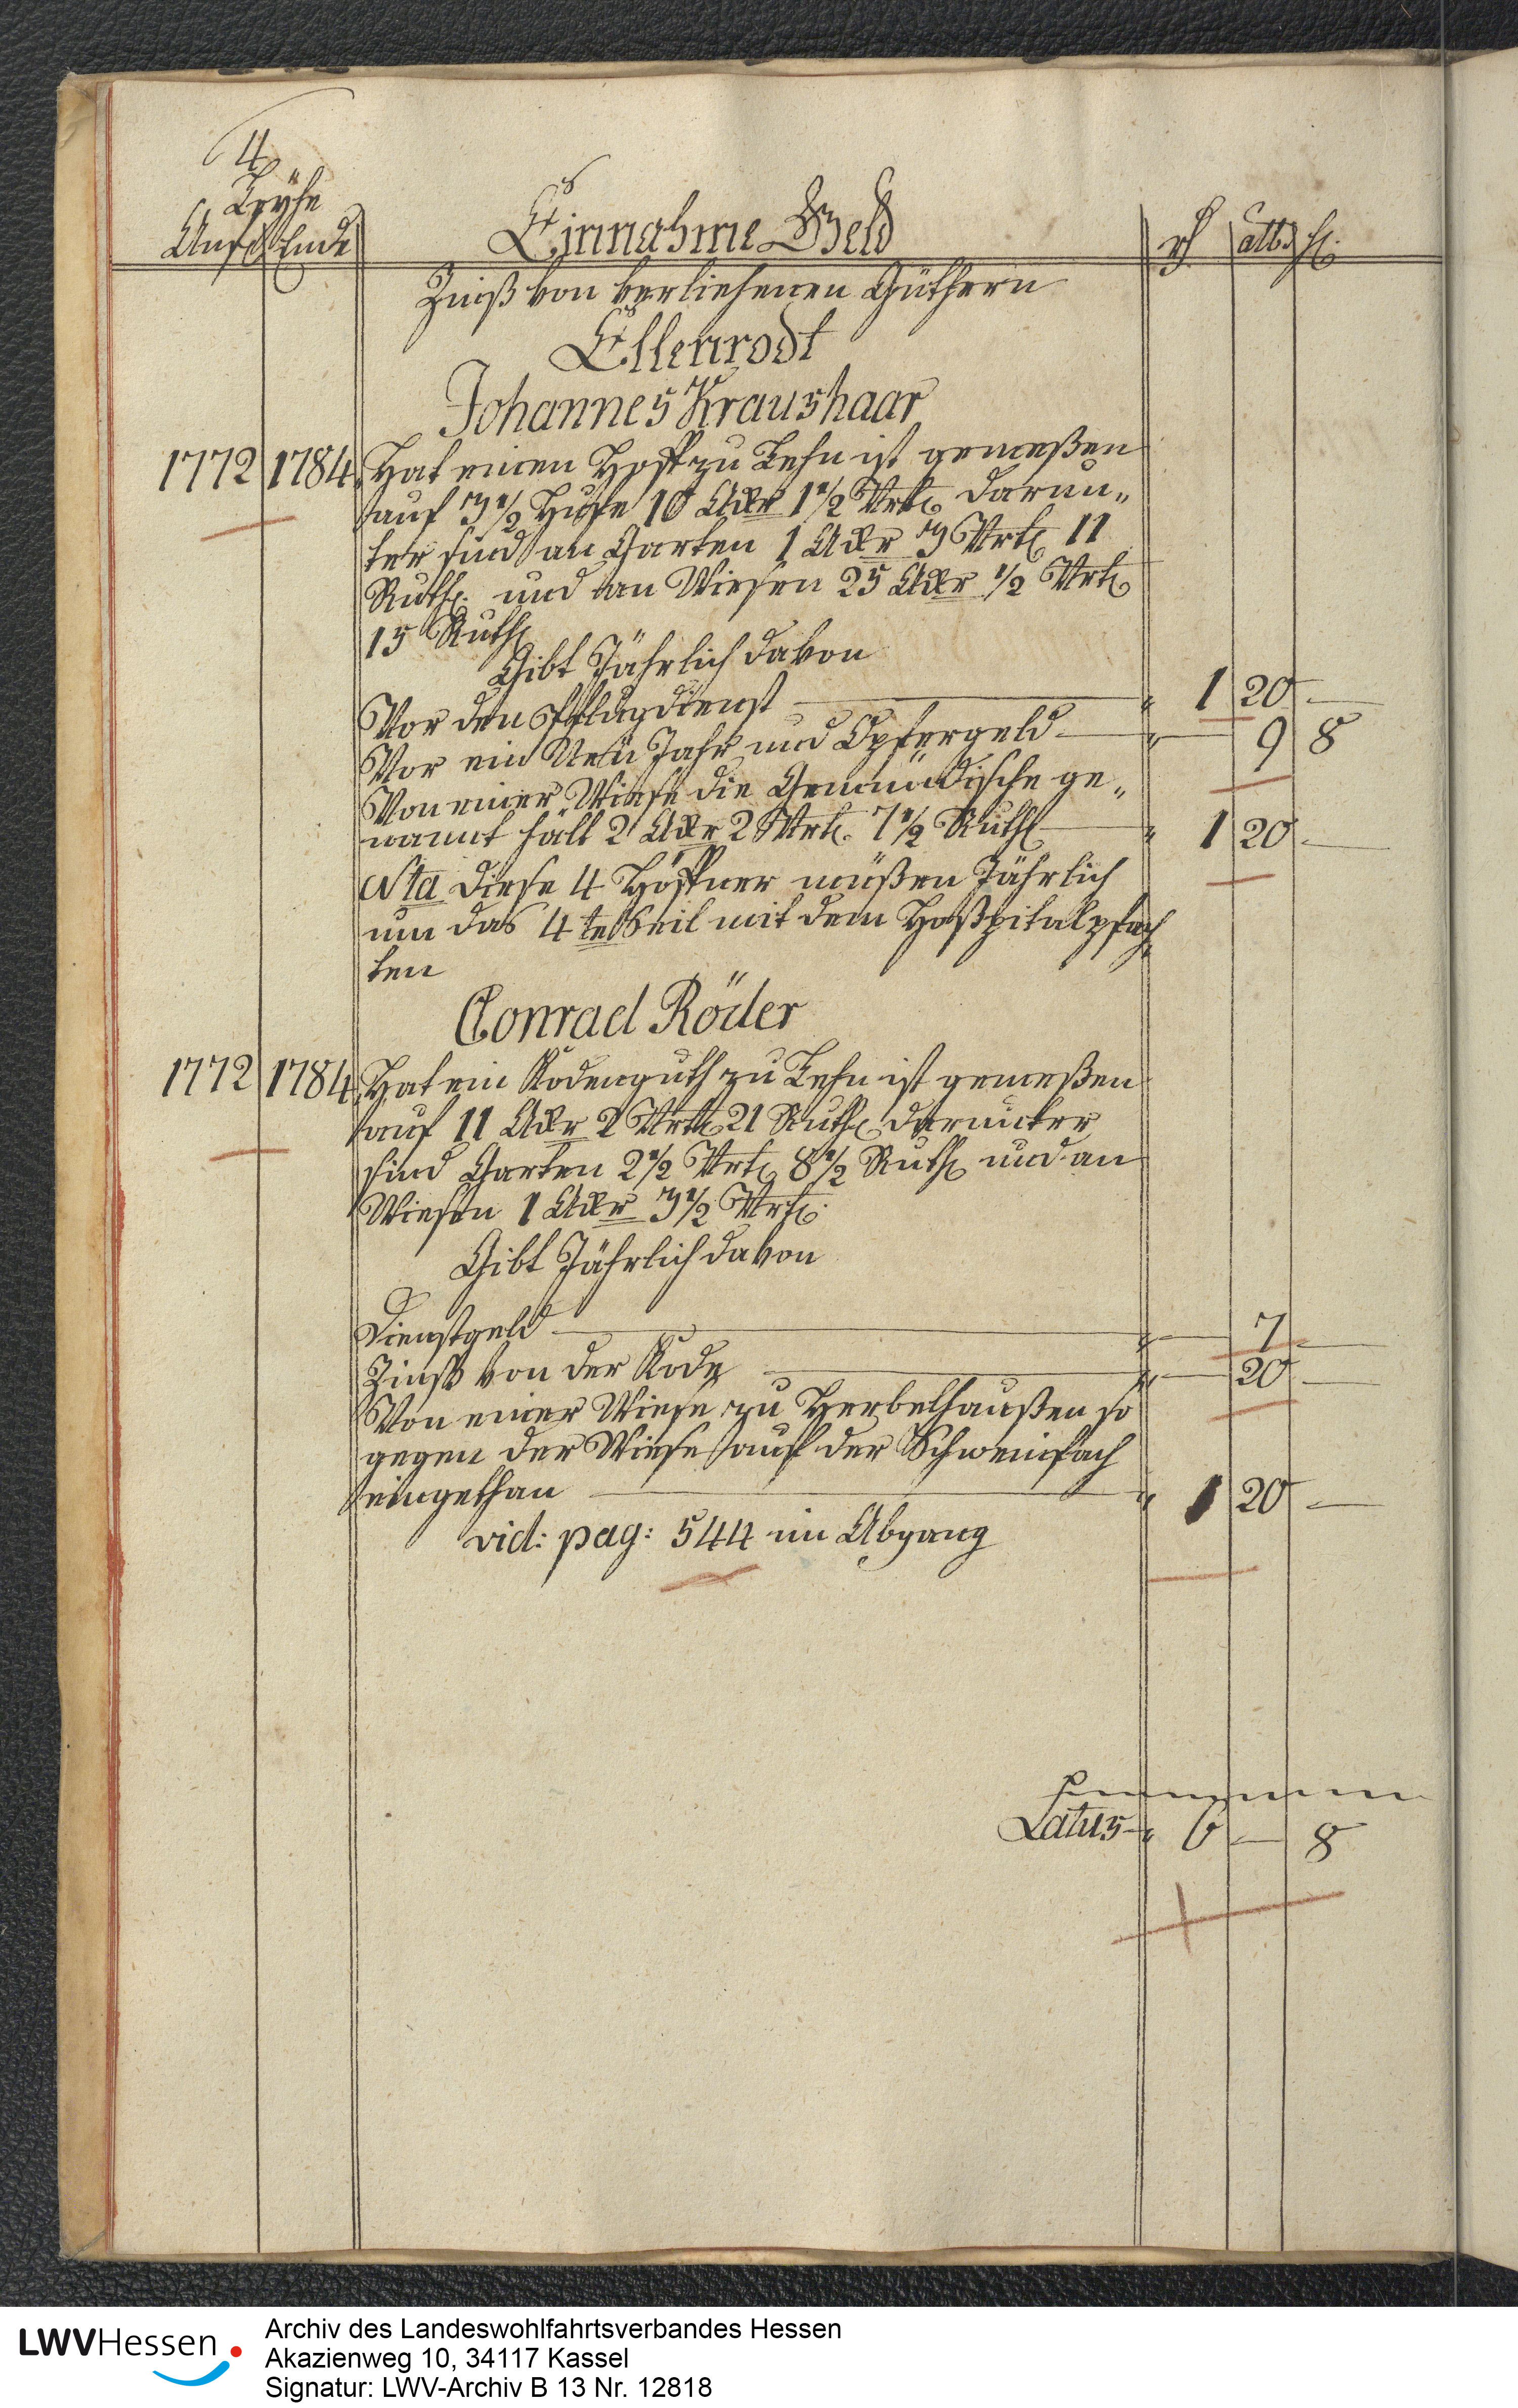 4
Leyhe
Anf. Ende
Einnahme Geld
rh alb. hl.
Zinß von verliehenen Güthern
Ellenrodt
Johannes Kraushaar
1772 1784 Hat einen Hoff zu Lehn ist gemeßen
auf 3 1/2 Hufe 10 Akr 1 1/2 Vrtl. darun„
ter sind an Garten 1 Akr 3 Vrtl. 11
Ruth. und an Wiesen 25 Akr 1/2 Vrtl.
15 Ruth.
Gibt Jährlich davon
Vor den Pflugdienst 1 20 —
Vor ein Neu Jahr und Opfergeld — 9 8
Von einer Wiese die Gemündische ge„
nannt hält 2 Akr 2 Vrtl. 7 1/2 Ruth. 1 20 —
Nta diese 4 Höffner müßen Jährlich
um das 4te theil mit dem Hoßpital pfach„
ten
Conrad Röder
1772 1784 Hat ein Kodenguth zu Lehn ist gemeßen
auf 11 Akr 2 Vrtl. 21 Ruth. darunter
sind Garten 2 1/2 Vrtl. 8 1/2 Ruth. und an
Wiesen 1 Akr 3 1/2 Vrtl.
Gibt Jährlich davon
Dienstgeld — 7 —
Zinß von der Kode — 20 —
Von einer Wiese zu Herbelhaußen so
gegen der Wiese auf der Schweinfach
eingethan 1 20 —
vid: pag: 544 im Abgang
Latus 6 — 8
LWVHessen
Archiv des Landeswohlfahrtsverbandes Hessen
Akazienweg 10, 34117 Kassel
Signatur: LWV-Archiv B 13 Nr. 12818